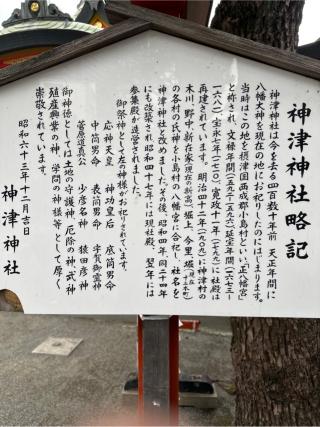 神津神社略記
神津神社は今を去る四百数十年前 天正年間に
八幡大神を現在の地にお祀りしたのにはじまります。
当時はこの地を摂津国西成郡小島村といい、正八幡宮
と称され、文禄年間(一五九二~一五九六)延宝年間(一六七三~
一六八一)宝永七年(一七一〇)寛政十一年(一七九九)に社殿は
再建されています。明治四十二年(一九〇九)に神津村の
木川、野中、新在家(現在の新高)堀上、今里、堀(現在の十三本町)
の各村の氏神を小島村の八幡宮に合祀し、社名を
神津神社と改めました。その後、昭和四年、同二十四年
にも改築され昭和四十七年には現社殿、翌年には
参集殿が造営されました。
御祭神として左の神様がお祀りされています。
応神天皇 神功皇后 底筒男命
中筒男命 表筒男命 宇賀御霊神
菅原道真公 少彦名神 猿田彦神
御神徳としては土地の守護神、厄除の神 武神
殖産興業の神、学問の神様等として厚く
崇敬されています。
昭和六十三年十二月吉日
神津神社